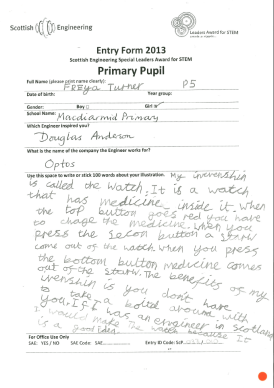 Scottish Engineering
Leaders Award for STEM
Entry Form 2013
Scottish Engineering Special Leaders Award for STEM
Primary Pupil
Full Name (please print name clearly):
FREya Turner P5
Date of birth: Year group:
Gender: Boy Girl
School Name: Macdiarmid Primary
Which Engineer inspired you?
Douglas Anderson
What is the name of the company the Engineer works for?
Optos
Use this space to write or stick 100 words about your illustration. My invenshin
is called the watch. It is a watch
that has medicine inside it. When
the top button goes red you have
to change the medicine. When you
press the secon button a straw
come out of the watch when you press
the bottom button medicine comes
out of the straw. The benefits of my
invenshin is you don't have
to take a bottle around with
you. If I was an engineer in Scotland
I would make The watch because It
is a good idea.
For Office Use Only
SAE: YES / NO SAE Code: SAE Entry ID Code: SCF